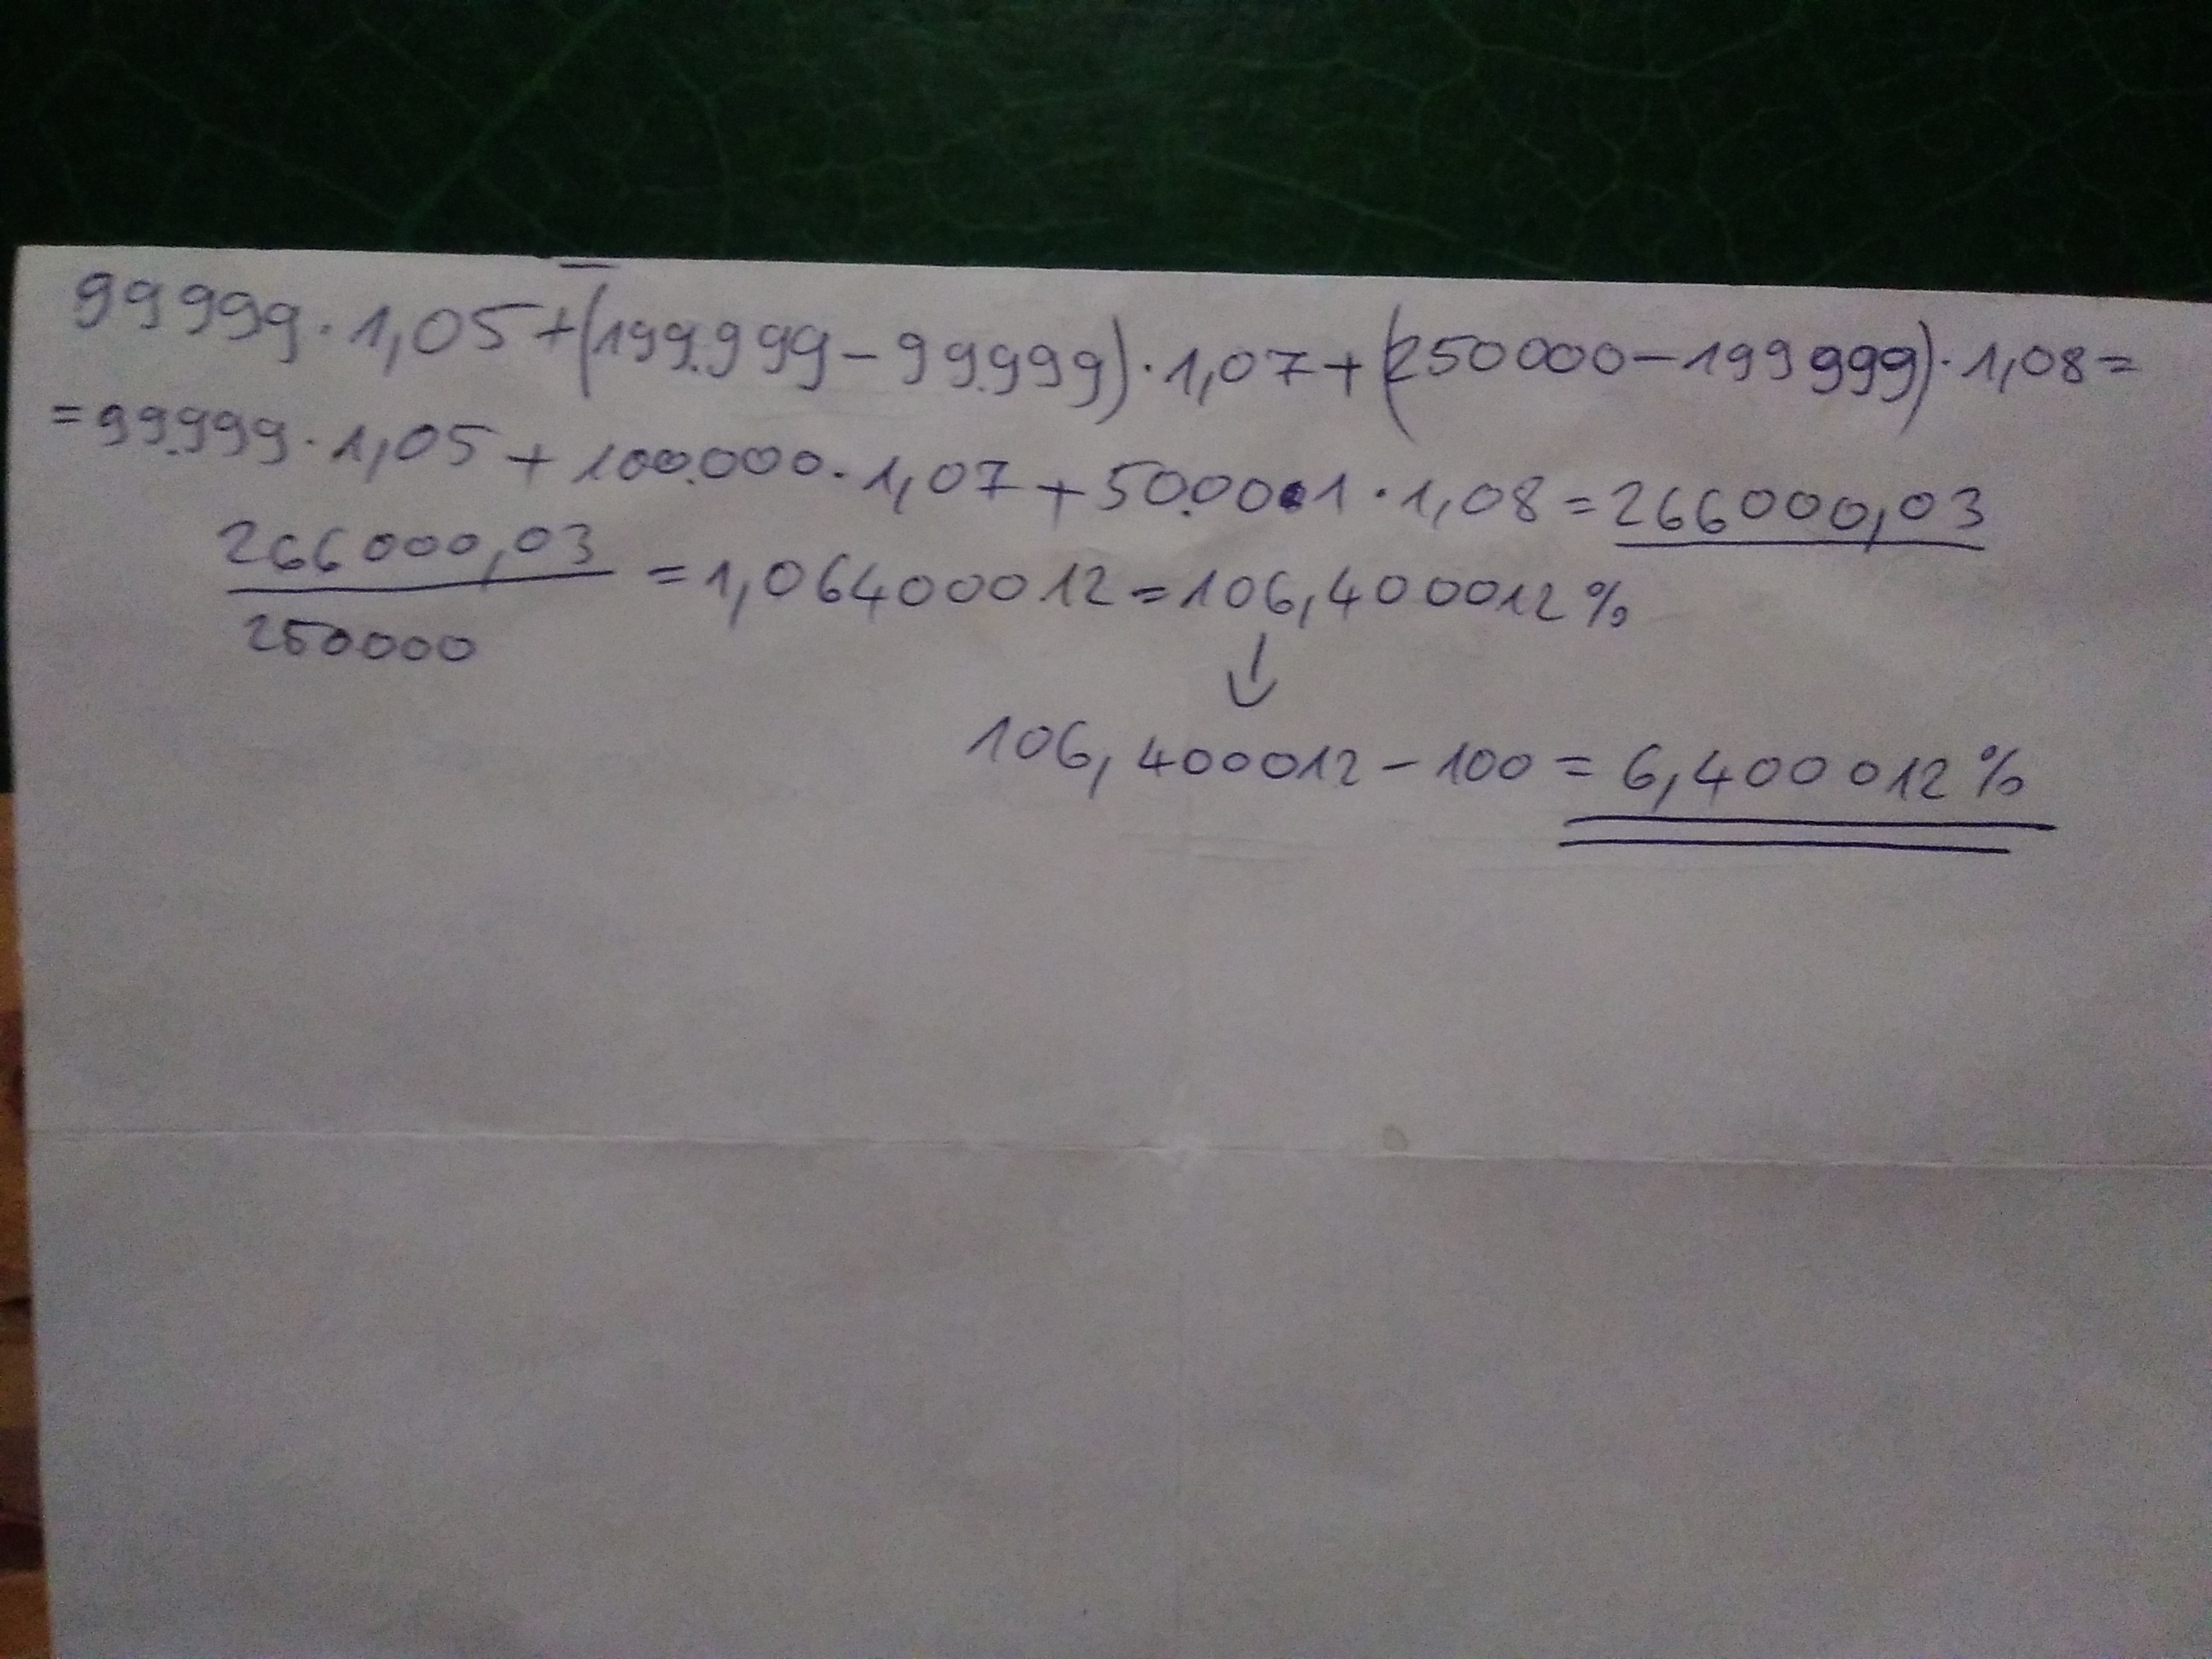 99999·1,05+(199.999-99.999)·1,07+(250000-199999)·1,08=
=99.999·1,05+100.000·1,07+50.001·1,08=266000,03
266000,03
250000
=1,06400012=106,400012%
↓
106,400012-100=6,400012%